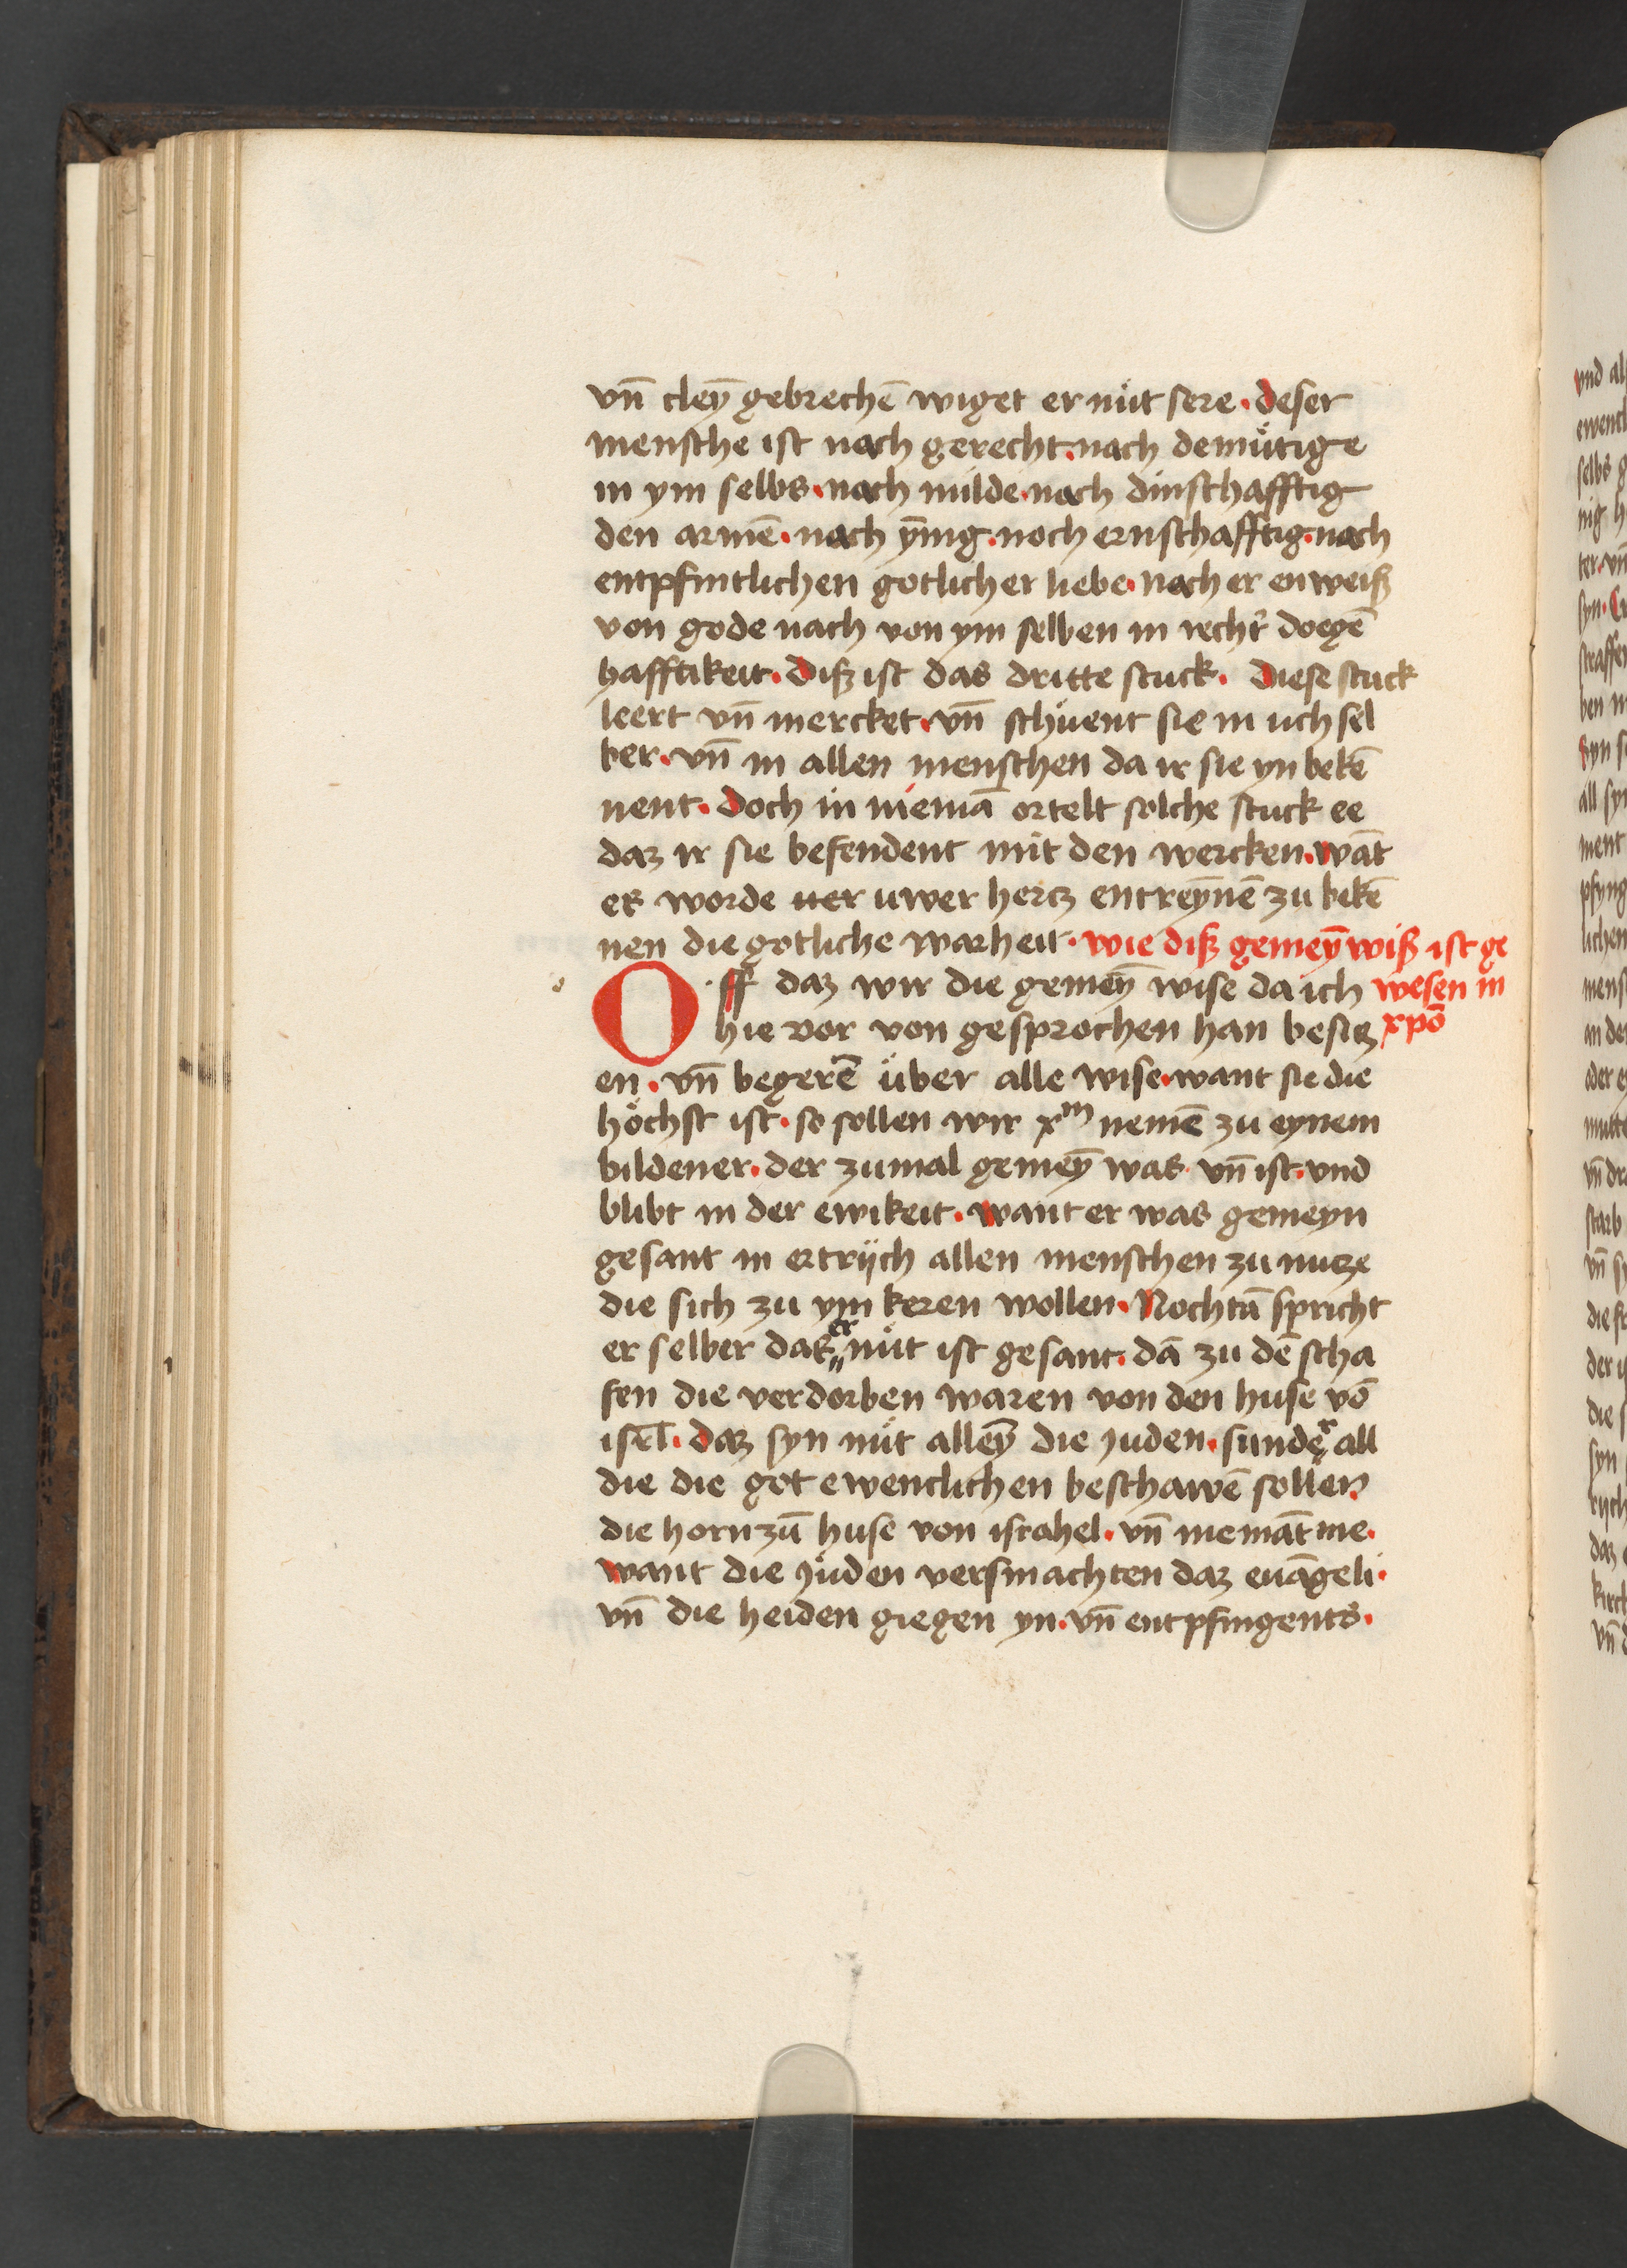 vn̄ cleȳ gebrechē wiget er nuͤt sere · deser
mensche ist noch gerecht · nach demuͤtige
in ym selbs · noch milde · noch dinsthafftig
den armē · noch ȳnig · noch ernsthafftig · nach
entpfintlichen gotlicher liebe · noch er enweiß
von gode nach von ym selben in recht' doegē
hafftikeit · Diß ist das dritte stuck · Diese stuck
leert vn̄ mercket · vn̄ schuͤent sie in uch sel
ber · vn̄ in allen menschen da ir sie yn bekē
nent · Doch in niemā ortelt solche stuck ee
daz ir sie befendent mit den wercken · wāt
es worde uer uwer hertz entreȳnē zu bekē
nen die gotliche warheit · wie diß gemeȳ wiß ist ge
Off daz wir die gemeȳ wise da ich wesen in
hie vor von gesprochen han besitz xpō
en · vn̄ begerē uͤber alle wise · want sie die
hoͤchst ist · so sollen wir xm nemē zu eynem
bildener · der zumal gemeȳ was vn̄ ist · vnd
blibt in der ewikeit · want er was gemeyn
gesant in ertrijch allen menschen zu nutze
die sich zu ym keren wollen · Nochtā spricht
er selber das er nuͤt ist gesant · dā zu dē scha
fen die verdorben waren von den huse vō
isrl̄ · daz syn nuͤt alleȳ die juden · sunder all
die die got ewenclichen beschawē sollen
die horn zū huse von israhel · vn̄ niemāt me ·
want die juͤden versmachten daz euāgeli ·
vn̄ die heiden giegen yn · vn̄ entpfingents ·